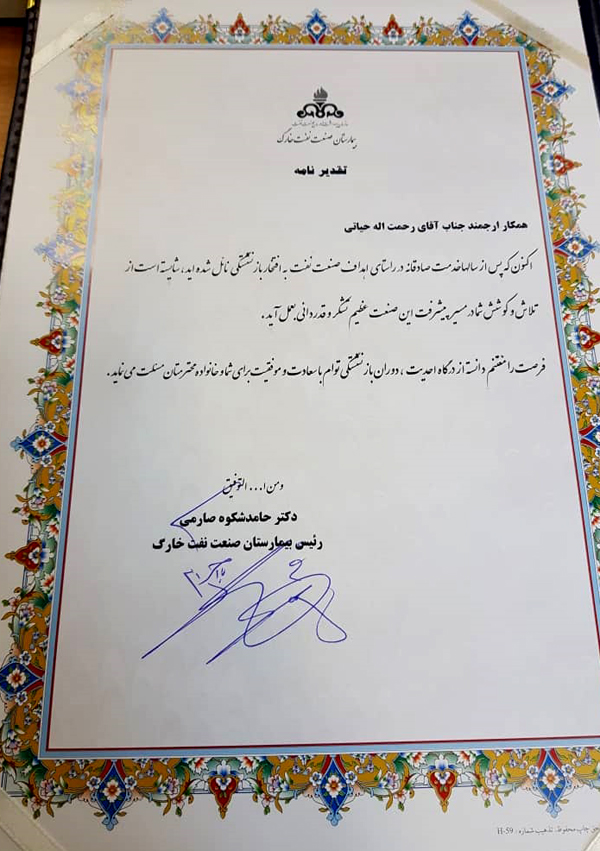 بیمارستان صنعت نفت خارگ
تقدیر نامه
همکار ارجمند جناب آقای رحمت اله حیاتی
اکنون که پس از سالها خدمت صادقانه در راستای اهداف صنعت نفت به افتخار بازنشستگی نائل شده اید، شایسته است از
تلاش و کوشش شما در مسیر پیشرفت این صنعت عظیم تشکر و قدردانی بعمل آید.
فرصت را مغتنم دانسته از درگاه احدیت، دوران بازنشستگی توام با سعادت و موفقیت برای شما و خانواده محترمتان مسئلت می نماید.
ومن ا... التوفیق
دکتر حامد شکوه صارمی
رئیس بیمارستان صنعت نفت خارگ
چاپ محفوظ. تذهیب شماره: H-59